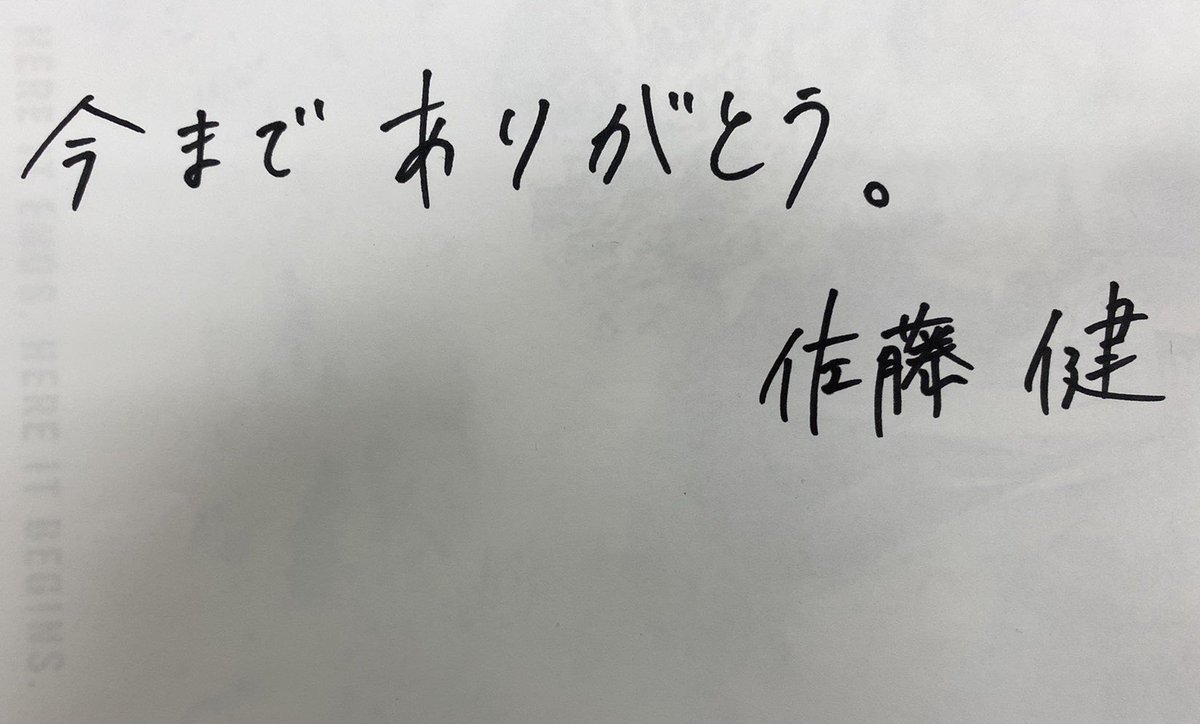 今まで ありがとう。
佐藤 健
HERE IT ENDS. HERE IT BEGINS.